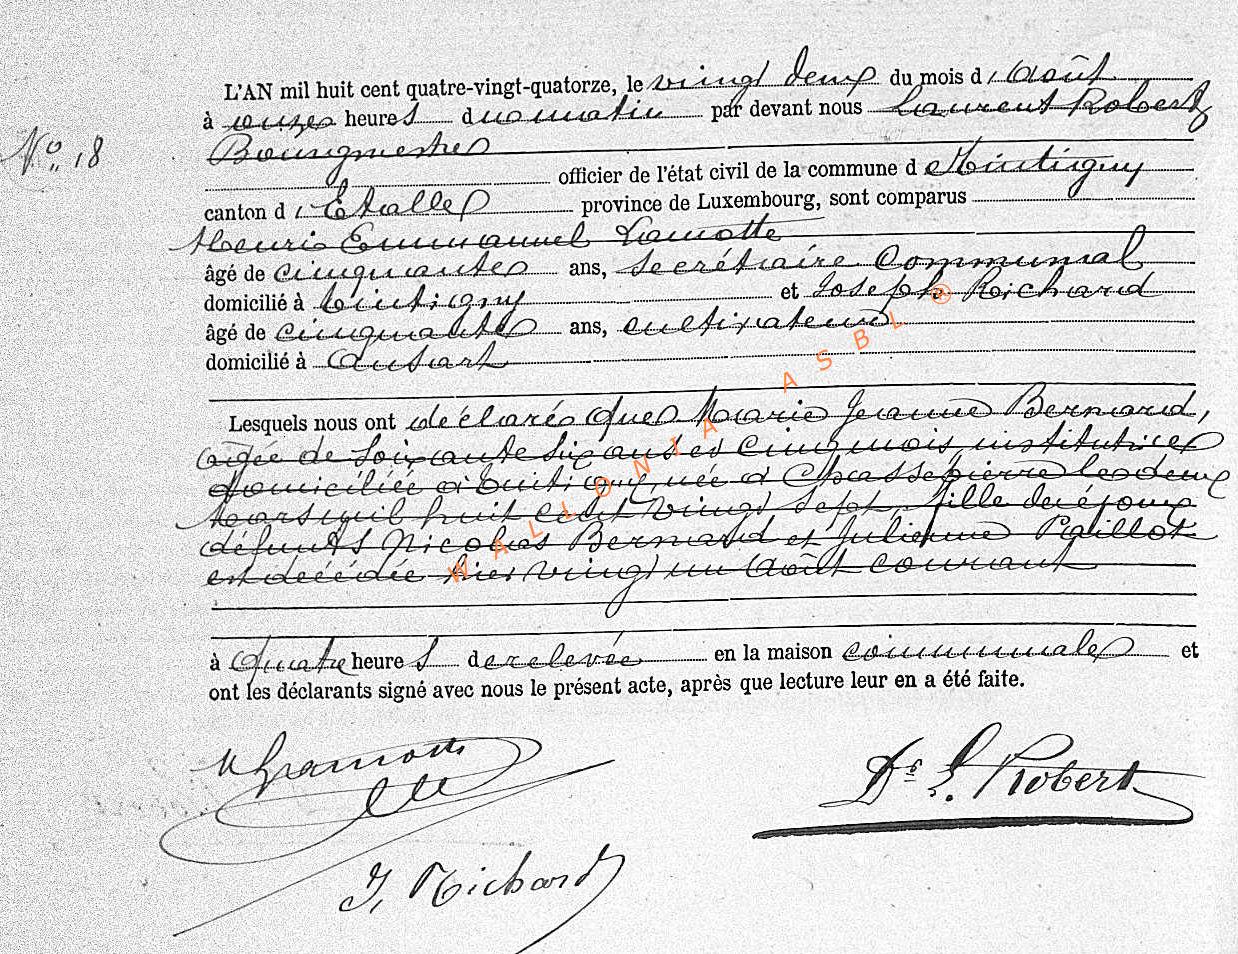 L'AN mil huit cent quatre-vingt-quatorze, le vingt deux du mois d'Août
à onze heures du matin par devant nous Laurent Robert
N° 18
Bourgmestre
officier de l'état civil de la commune de Tintigny
canton d'Etalle province de Luxembourg, sont comparus
Henri Emmanuel Lamotte
âgé de cinquante ans, secrétaire communal
domicilié à Tintigny et Joseph Richard
âgé de cinquante ans, cultivateur
domicilié à Ansart
Lesquels nous ont déclaré que Marie Jeanne Bernard,
agée de soixante six ans et cinq mois, institutrice
domiciliée à Tintigny, née à Chassepierre le deux
mars mil huit cent vingt sept, fille des époux
défunts Nicolas Bernard et Julienne Paillot
est décédée hier vingt un Août courant
à quatre heures de relevée en la maison communale et
ont les déclarants signé avec nous le présent acte, après que lecture leur en a été faite.
Lamotte
Dr L. Robert
J. Richard
WALLONIA ASBL ®